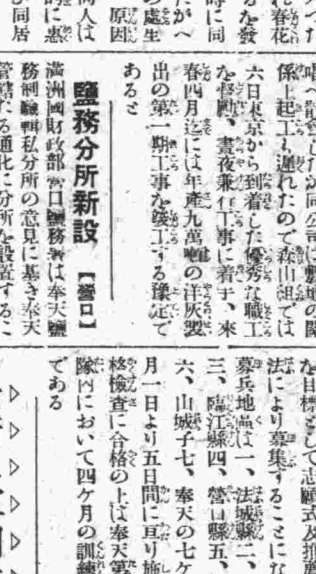 れ春花
るを發
時に同
たがへ
の處生
原因
同人は
時に惠
同居
唱へ散會したが同公司は敷地の關
係上起工も遲れたので森山組では
六日東京から到着した優秀な職工
を督勵、晝夜兼行工事に着手、來
春四月迄には年產九萬噸の洋灰製
出の第一期工事を竣工する豫定で
あると
鹽務分所新設【營口】
滿洲國財政部營口鹽務署は奉天鹽
務緝私分所の意見に基き奉天
管轄たる通化に分所を設置するこ
を目標として志願式及推薦
法により募集することにな
募兵地區は一、法城縣二、
三、臨江縣四、營口縣五、
六、山城子七、奉天の七ケ
月一日より五日間に亘り施
格檢查に合格の上は奉天第
隊內において四ケ月の訓練
である